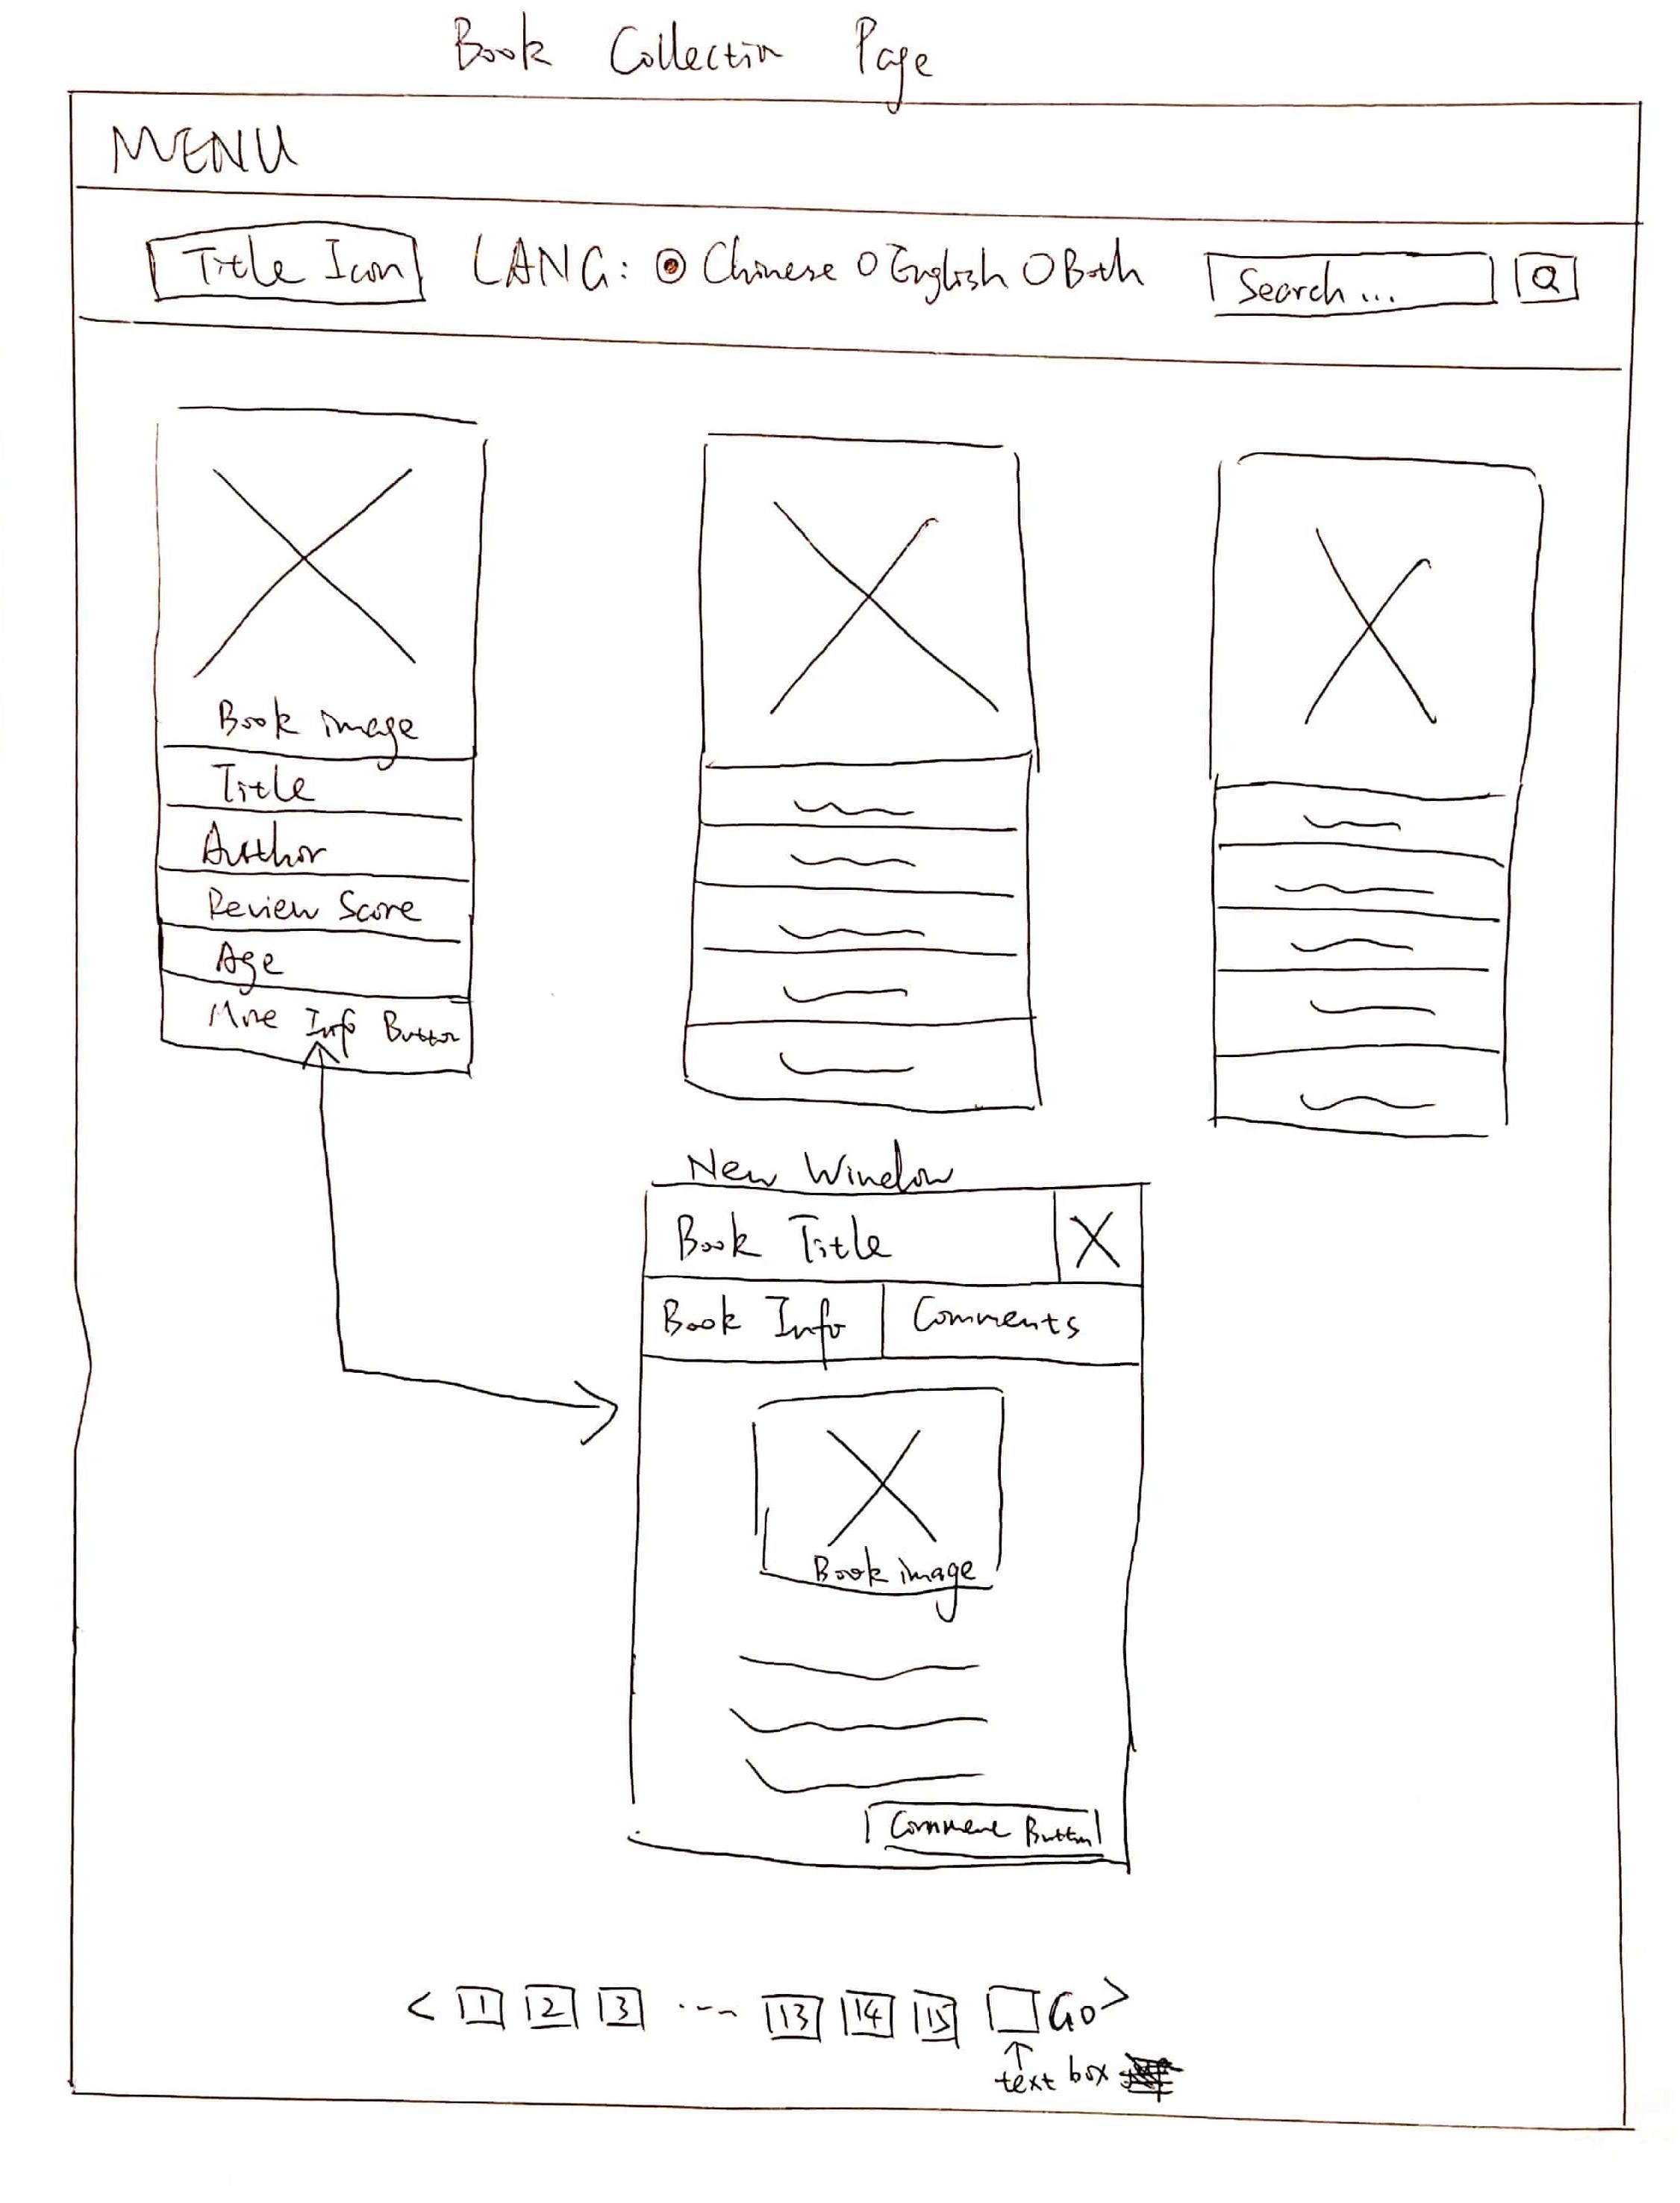 Book Collection Page
MENU
Title Icon LANG: Chinese English Both Search...
Book image
Title
Author
Review Score
Age
More Info Button
New Window
Book Title X
Book Info Comments
Book image
Comment Button
< 1 2 3 ... 13 14 15 Go >
text box